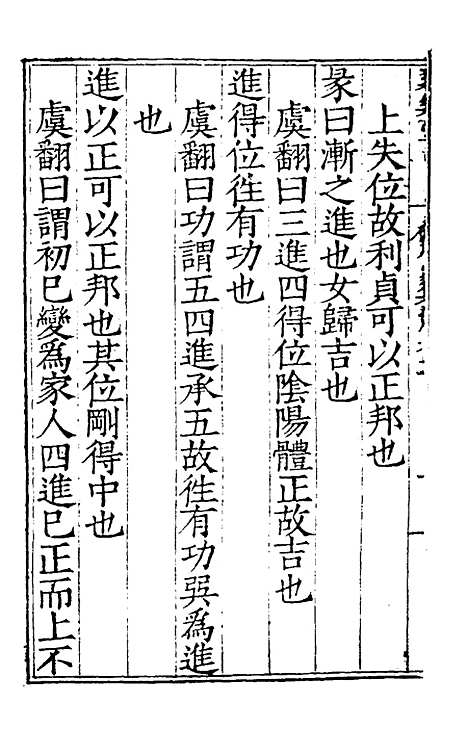 上失位故利貞可以正邦也
彖曰漸之進也女歸吉也
虞翻曰三進四得位陰陽體正故吉也
進得位往有功也
虞翻曰功謂五四進承五故往有功巽爲進
也
進以正可以正邦也其位剛得中也
虞翻曰謂初已變爲家人四進已正而上不